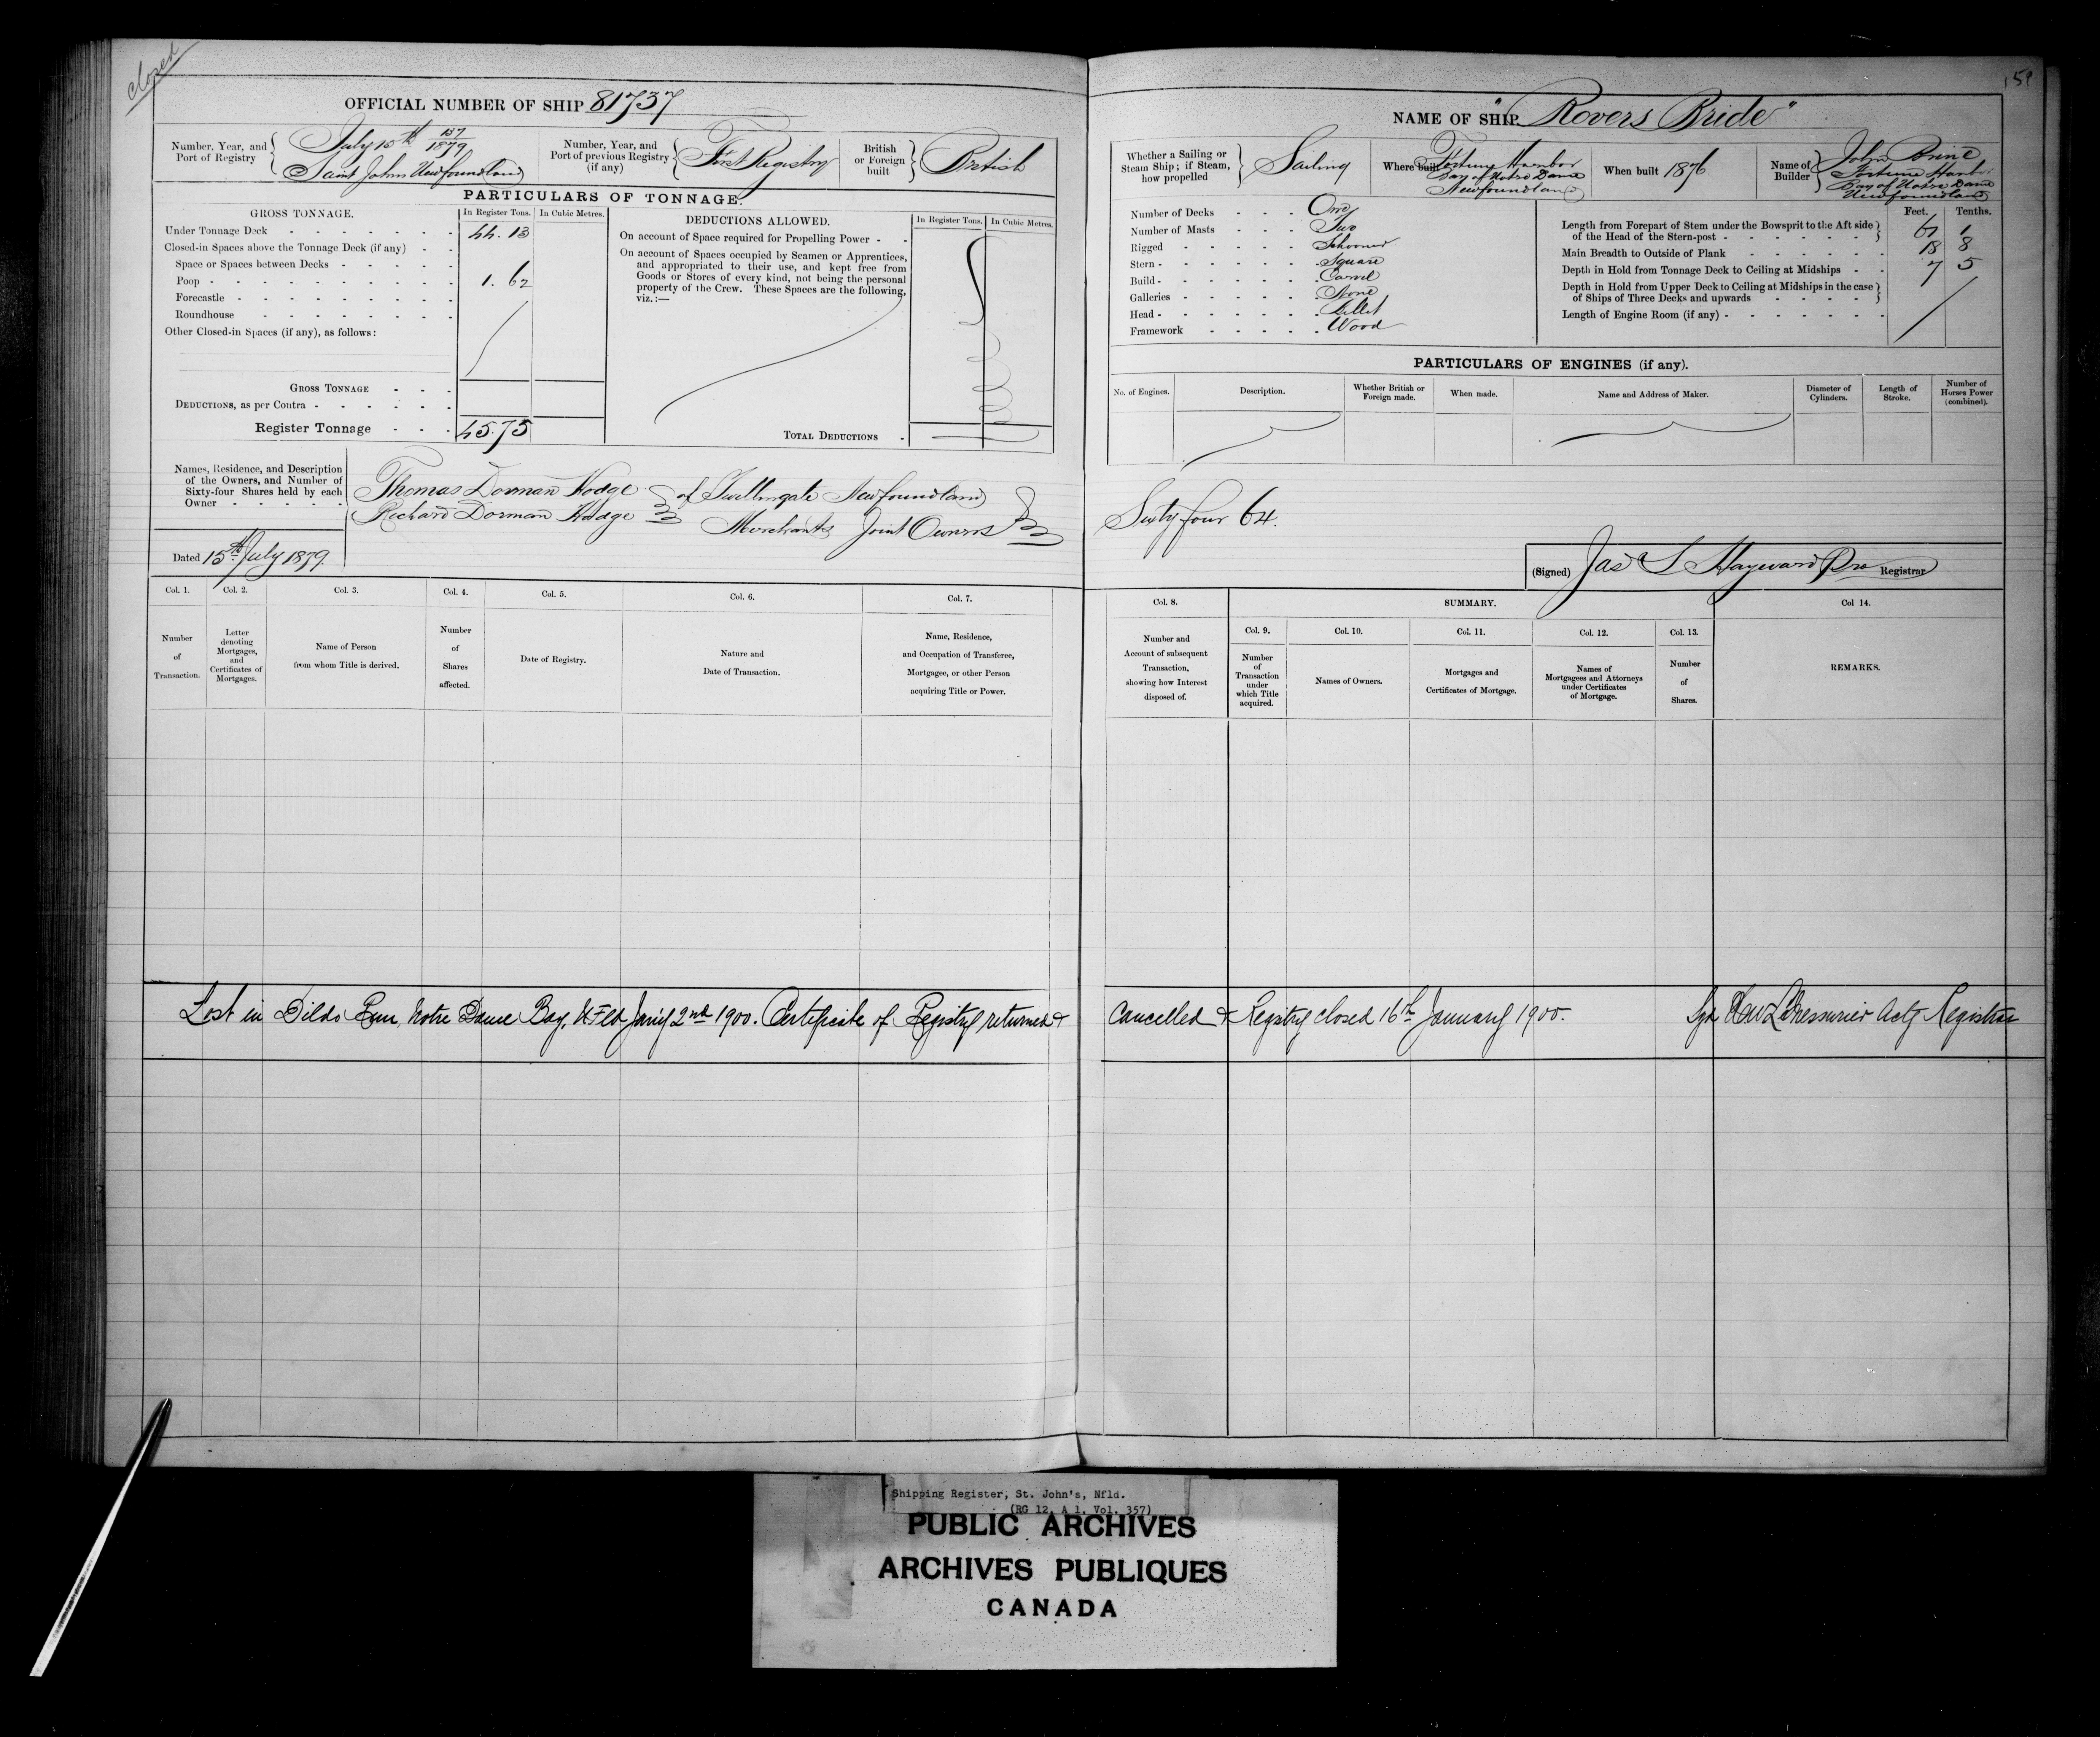 closed
159
OFFICIAL NUMBER OF SHIP 81737
Number, Year, and Port of Registry
July 15th 157/1879
Saint Johns Newfoundland
Number, Year, and Port of previous Registry (if any)
First Registry
British or Foreign built
British
PARTICULARS OF TONNAGE.
GROSS TONNAGE.
In Register Tons.
In Cubic Metres.
Under Tonnage Deck 44.13
Closed-in Spaces above the Tonnage Deck (if any)
Space or Spaces between Decks
Poop 1.62
Forecastle
Roundhouse
Other Closed-in Spaces (if any), as follows:
GROSS TONNAGE
DEDUCTIONS, as per Contra
Register Tonnage 45.75
DEDUCTIONS ALLOWED.
In Register Tons.
In Cubic Metres.
On account of Space required for Propelling Power
On account of Spaces occupied by Seamen or Apprentices,
and appropriated to their use, and kept free from
Goods or Stores of every kind, not being the personal
property of the Crew. These Spaces are the following,
viz.:—
TOTAL DEDUCTIONS
Names, Residence, and Description
of the Owners, and Number of
Sixty-four Shares held by each
Owner
Thomas Dorman Hodge of Twillingate Newfoundland
Richard Dorman Hodge Merchants Joint Owners
Dated 15th July 1879.
NAME OF SHIP "Rovers Bride"
Whether a Sailing or
Steam Ship; if Steam,
how propelled
Sailing
Where built
Fortune Harbor
Bay of Notre Dame
Newfoundland
When built 1876
Name of Builder
John Brine
Fortune Harbor
Bay of Notre Dame
Newfoundland
Number of Decks One
Number of Masts Two
Rigged Schooner
Stern Square
Build Carvel
Galleries None
Head Billet
Framework Wood
Feet. Tenths.
Length from Forepart of Stem under the Bowsprit to the Aft side
of the Head of the Stern-post 67 1
Main Breadth to Outside of Plank 18 8
Depth in Hold from Tonnage Deck to Ceiling at Midships 7 5
Depth in Hold from Upper Deck to Ceiling at Midships in the case
of Ships of Three Decks and upwards
Length of Engine Room (if any)
PARTICULARS OF ENGINES (if any).
No. of Engines.
Description.
Whether British or Foreign made.
When made.
Name and Address of Maker.
Diameter of Cylinders.
Length of Stroke.
Number of Horses Power (combined).
Sixty four 64.
(Signed) Jas S Hayward Pro Registrar
Col. 1.
Number of Transaction.
Col. 2.
Letter denoting Mortgages, and Certificates of Mortgages.
Col. 3.
Name of Person from whom Title is derived.
Col. 4.
Number of Shares affected.
Col. 5.
Date of Registry.
Col. 6.
Nature and Date of Transaction.
Col. 7.
Name, Residence, and Occupation of Transferee, Mortgagee, or other Person acquiring Title or Power.
Col. 8.
Number and Account of subsequent Transaction, showing how Interest disposed of.
SUMMARY.
Col. 9.
Number of Transaction under which Title acquired.
Col. 10.
Names of Owners.
Col. 11.
Mortgages and Certificates of Mortgage.
Col. 12.
Names of Mortgagees and Attorneys under Certificates of Mortgage.
Col. 13.
Number of Shares.
Col 14.
REMARKS.
Lost in Dildo Run, Notre Dame Bay, N.F.ld Jan'y 2nd 1900. Certificate of Registry returned & Cancelled & Registry closed 16th January 1900. Sgd LeMessurier Actg Registrar
Shipping Register, St. John's, Nfld.
(RG 12, A 1, Vol. 357)
PUBLIC ARCHIVES
ARCHIVES PUBLIQUES
CANADA